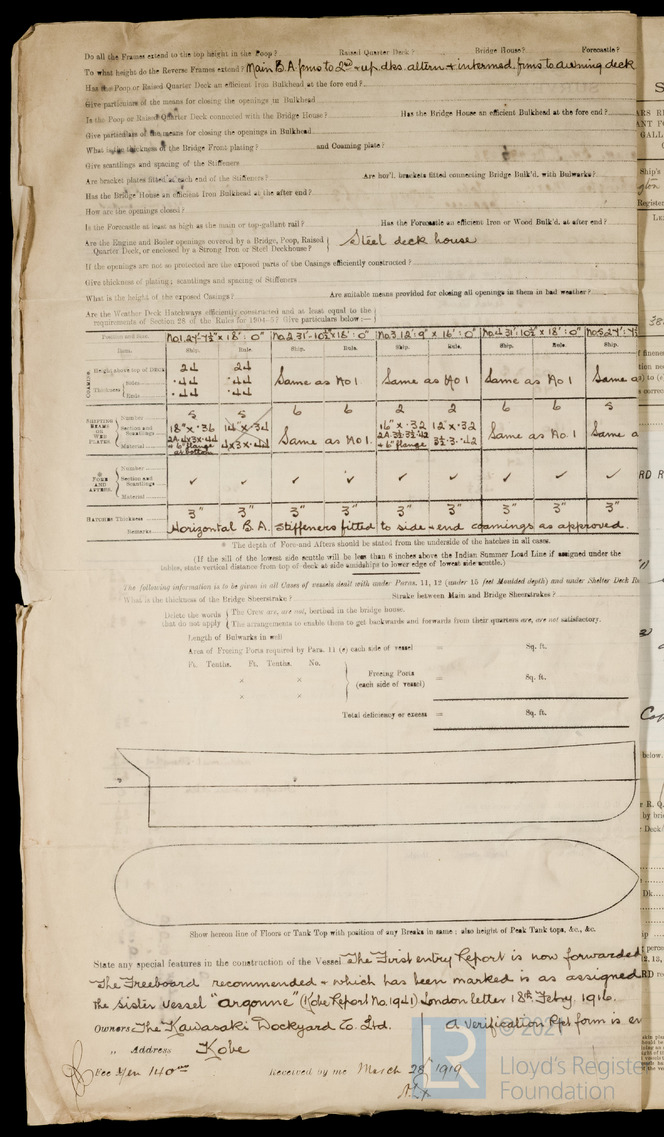 Do all the Frames extend to the top height in the Poop? Raised Quarter Deck? Bridge House? Forecastle?
To what height do the Reverse Frames extend? Main B.A. frms to 2nd & up. dks. altern & intermed. frms to awning deck
Has the Poop or Raised Quarter Deck an efficient Iron Bulkhead at the fore end?
Give particulars of the means for closing the openings in Bulkhead
Is the Poop or Raised Quarter Deck connected with the Bridge House? Has the Bridge House an efficient Bulkhead at the fore end?
Give particulars of the means for closing the openings in Bulkhead
What is the thickness of the Bridge Front plating? and Coaming plate?
Give scantlings and spacing of the Stiffeners
Are bracket plates fitted at each end of the Stiffeners? Are hor'l. brackets fitted connecting Bridge Bulk'd. with Bulwarks?
Has the Bridge House an efficient Iron Bulkhead at the after end?
How are the openings closed?
Is the Forecastle at least as high as the main or top-gallant rail? Has the Forecastle an efficient Iron or Wood Bulk'd. at after end?
Are the Engine and Boiler openings covered by a Bridge, Poop, Raised
Quarter Deck, or enclosed by a Strong Iron or Steel Deckhouse? Steel deck house
If the openings are not so protected are the exposed parts of the Casings efficiently constructed?
Give thickness of plating; scantlings and spacing of Stiffeners
What is the height of the exposed Casings? Are suitable means provided for closing all openings in them in bad weather?
Are the Weather Deck Hatchways efficiently constructed and at least equal to the
requirements of Section 28 of the Rules for 1904-5? Give particulars below:—
Position and Size. No.1. 27'-7½" x 18'-0" No.2. 31'-10½" x 18'-0" No.3. 12'-9" x 16'-0" No.4. 31'-10½" x 18'-0" No.5. 27'-7½
Item. Ship. Rule. Ship. Rule. Ship. Rule. Ship. Rule. Ship.
COAMING
Height above top of DECK 24 24
Thickness Sides .44 .44 Same as No 1 Same as No 1 Same as No 1 Same a
Ends .44 .44
SHIFTING BEAMS OR WEB PLATES
Number 5 5 6 6 2 2 6 6 5
Section and Scantlings 18" x .36 14" x .34 16" x .32 12" x .32
Material 2A 4x3x.44 4x3x.44 Same as No.1. 2A 3½.3½.42 3½.3.42 Same as No.1 Same a
+ 6" flange at bottom + 6" flange
FORE AND AFTERS.
Number
Section and Scantlings ✓ ✓ ✓ ✓ ✓ ✓ ✓ ✓ ✓
Material
HATCHES Thickness 3" 3" 3" 3" 3" 3" 3" 3" 3"
Remarks Horizontal B.A. Stiffeners fitted to side & end coamings as approved.
* The depth of Fore-and Afters should be stated from the underside of the hatches in all cases.
(If the sill of the lowest side scuttle will be less than 6 inches above the Indian Summer Load Line if assigned under the
tables, state vertical distance from top of deck at side amidships to lower edge of lowest side scuttle.)
The following information is to be given in all Cases of vessels dealt with under Paras. 11, 12 (under 15 feet Moulded depth) and under Shelter Deck
What is the thickness of the Bridge Sheerstrake? Strake between Main and Bridge Sheerstrakes?
Delete the words The Crew are, are not, berthed in the bridge house.
that do not apply The arrangements to enable them to get backwards and forwards from their quarters are, are not satisfactory.
Length of Bulwarks in well
Area of Freeing Ports required by Para. 11 (e) each side of vessel = Sq. ft.
Ft. Tenths. Ft. Tenths. No.
x x Freeing Ports (each side of vessel) = Sq. ft.
x x
Total deficiency or excess = Sq. ft.
Show hereon line of Floors or Tank Top with position of any Breaks in same; also height of Peak Tank tops, &c., &c.
State any special features in the construction of the Vessel The First entry Report is now forwarded
The Freeboard recommended & which has been marked is as assigned
the sister vessel "Argonne" (Kobe Report No. 1941) London letter 18th Febry. 1916.
Owners The Kawasaki Dockyard Co. Ltd. A verification Rpt form is en
" Address Kobe
Fee Yen 140 Received by me March 28th 1919
© 202
LR
Lloyd's Register
Foundation